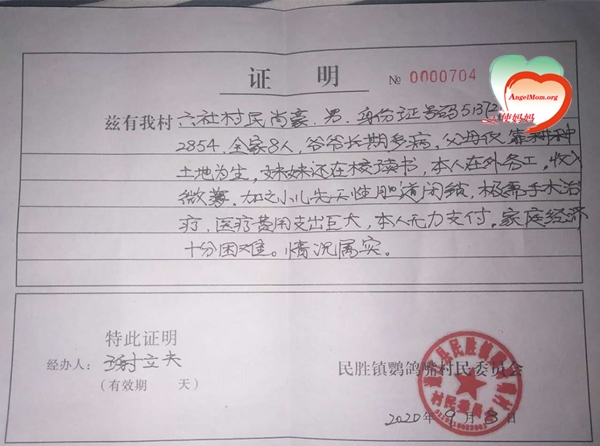 证 明
№ 0000704
AngelMom.org
天使妈妈
兹有我村六社村民尚豪,男,身份证号码51372
2854,全家8人,爷爷长期多病,父母仅靠耕种
土地为生,妹妹还在校读书,本人在外务工,收入
微薄,加之小儿先天性胆道闭锁,极需手术治
疗,医疗费用支出巨大,本人无力支付,家庭经济
十分困难。情况属实。
特此证明
经办人:立夫
(有效期 天)
民胜镇鹦鸽嘴村民委员会
2020年9月8日